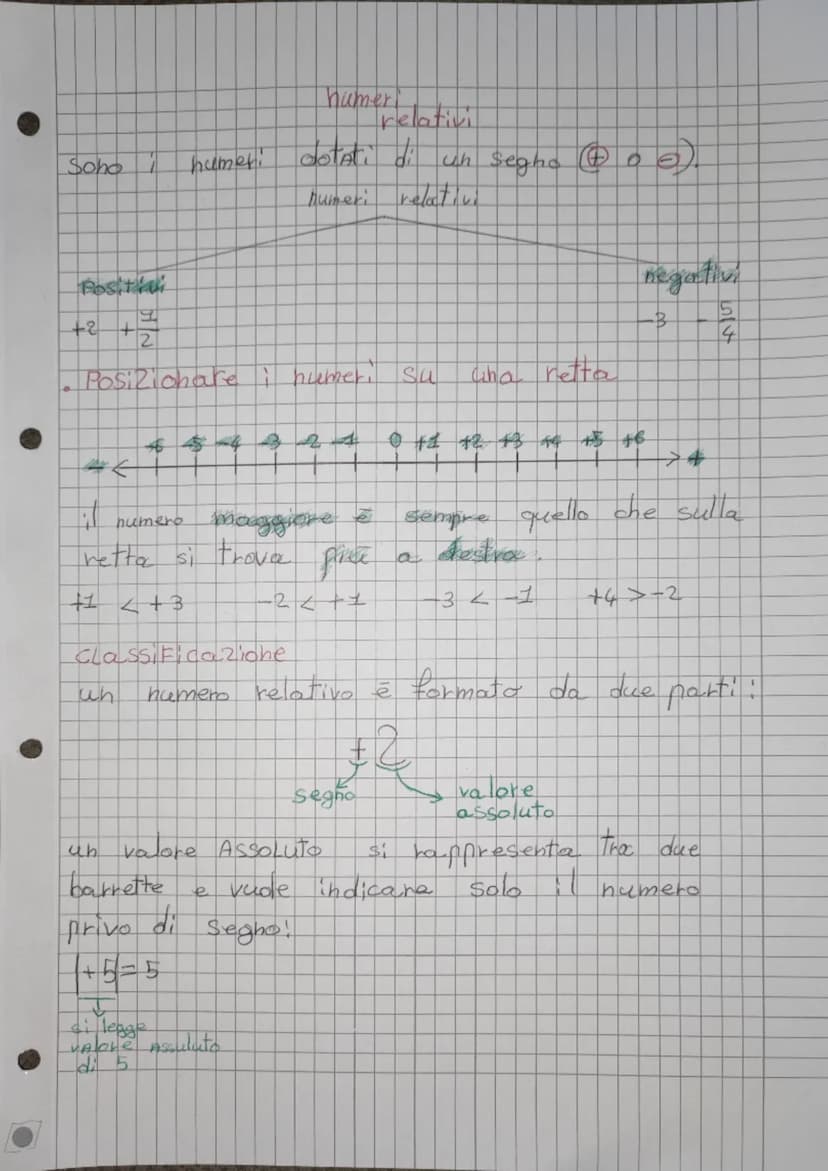 numeri
relativi
sono i numeri dotati di un segno (+ o -).
numeri relativi
Positivi negativi
+2 +1/2 -3 -5/4
. Posizionare i numeri su una retta
-6 -5 -4 -3 -2 -1 0 +1 +2 +3 +4 +5 +6
- +
il numero maggiore è sempre quello che sulla
retta si trova più a destra.
+1 < +3 -2 < +1 -3 < -1 +4 > -2
classificazione
un numero relativo è formato da due parti:
+2
segno valore
assoluto
un valore ASSOLUTO si rappresenta tra due
barrette e vuole indicare solo il numero
privo di segno!
|+5| = 5
si legge
valore assuluto
di 5